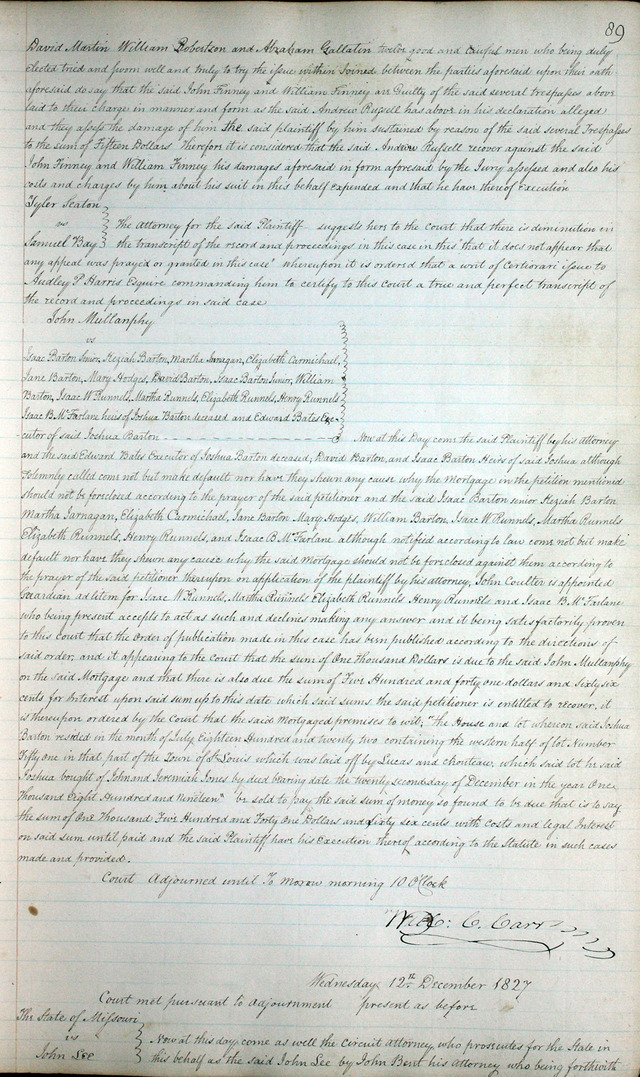 89
David Martin William Robertson and Abraham Gallatin twelve good and lawful men who being duly
elected tried and sworn well and truly to try the issue within Joined between the parties aforesaid upon their oath
aforesaid do say that the said John Finney and William Finney are Guilty of the said several trespasses above
laid to their charge in manner and form as the said Andrew Russell has above in his declaration alleged
and they assess the damage of him the said plaintiff by him sustained by reason of the said several Trespasses
to the sum of Fifteen Dollars Therefore it is considered that the said Andrew Russell recover against the said
John Finney and William Finney his damages aforesaid in form aforesaid by the Jury assessed and also his
costs and charges by him about his suit in this behalf expended and that he have thereof Execution
Tyler Seaton
vs The Attorney for the said Plaintiff suggests here to the court that there is diminution in
Samuel Bay the transcript of the record and proceedings in this case in this "that it does not appear that
any appeal was prayed or granted in this case" whereupon it is ordered that a writ of Certiorari issue to
P. Harris Esquire commanding him to certify to this Court a true and perfect transcript of
the record and proceedings in said case
John Mullanphy
vs
Isaac Barton Senior, Keziah Barton, Martha Jarnagan, Elizabeth Carmichael,
Jane Barton, Mary Hodges, David Barton, Isaac Barton Junior, William
Barton, Isaac W Runnels, Martha Runnels, Elizabeth Runnels, Henry Runnels
Isaac B. McFarlane heirs of Joshua Barton deceased and Edward Bates Exe-
cutor of said Joshua Barton Now at this Day come the said Plaintiff by his Attorney
and the said Edward Bates Executor of Joshua Barton deceased, David Barton, and Isaac Barton Heirs of said Joshua although
solemnly called come not but make default nor have they shewn any cause why the Mortgage in the petition mentioned
should not be foreclosed according to the prayer of the said petitioner and the said Isaac Barton senior Keziah Barton
Martha Jarnagan, Elizabeth Carmichael, Jane Barton Mary Hodges, William Barton, Isaac W. Runnels, Martha Runnels
Elizabeth Runnels, Henry Runnels, and Isaac B. McFarlane although notified according to law come not but make
default nor have they shewn any cause why the said Mortgage should not be foreclosed against them according to
the prayer of the said petitioner thereupon on application of the plaintiff by his attorney, John Coulter is appointed
Guardian ad litem for Isaac W Runnels, Martha Runnels Elizabeth Runnels Henry Runnels and Isaac B. McFarlane
who being present accepts to act as such and declines making any answer and it being satisfactorily proven
to this Court that the order of publication made in this case has been published according to the directions of
said order, and it appearing to the Court that the sum of One Thousand Dollars is due to the said John Mullanphy
on the said Mortgage and that there is also due the sum of Five Hundred and forty one dollars and Sixty six
cents for Interest upon said sum up to this date which said sums the said petitioner is entitled to recover, it
is thereupon ordered by the Court that the said Mortgaged premises to wit; "the House and lot whereon said Joshua
Barton resided in the month of July Eighteen Hundred and twenty two containing the western half of lot Number
Fifty one in that part of the Town of St Louis which was laid off by Lucas and Chouteau, which said lot he said
Joshua bought of John and Jeremiah Jones by deed bearing date the twenty second day of December in the year One
Thousand Eight Hundred and nineteen" be sold to pay the said sum of money so found to be due that is to say
the sum of One Thousand Five Hundred and Forty One Dollars and sixty six cents with costs and legal Interest
on said sum until paid and the said Plaintiff have his Execution thereof according to the Statute in such cases
made and provided.
Court Adjourned until To morow morning 10 O'Clock
C. Carr
Wednesday 12th December 1827
Court met pursuant to adjournment present as before
The State of Missouri
vs Now at this day come as well the Circuit Attorney who prosecutes for the State in
John Lee this behalf as the said John Lee by John Bent his Attorney who being forthwith